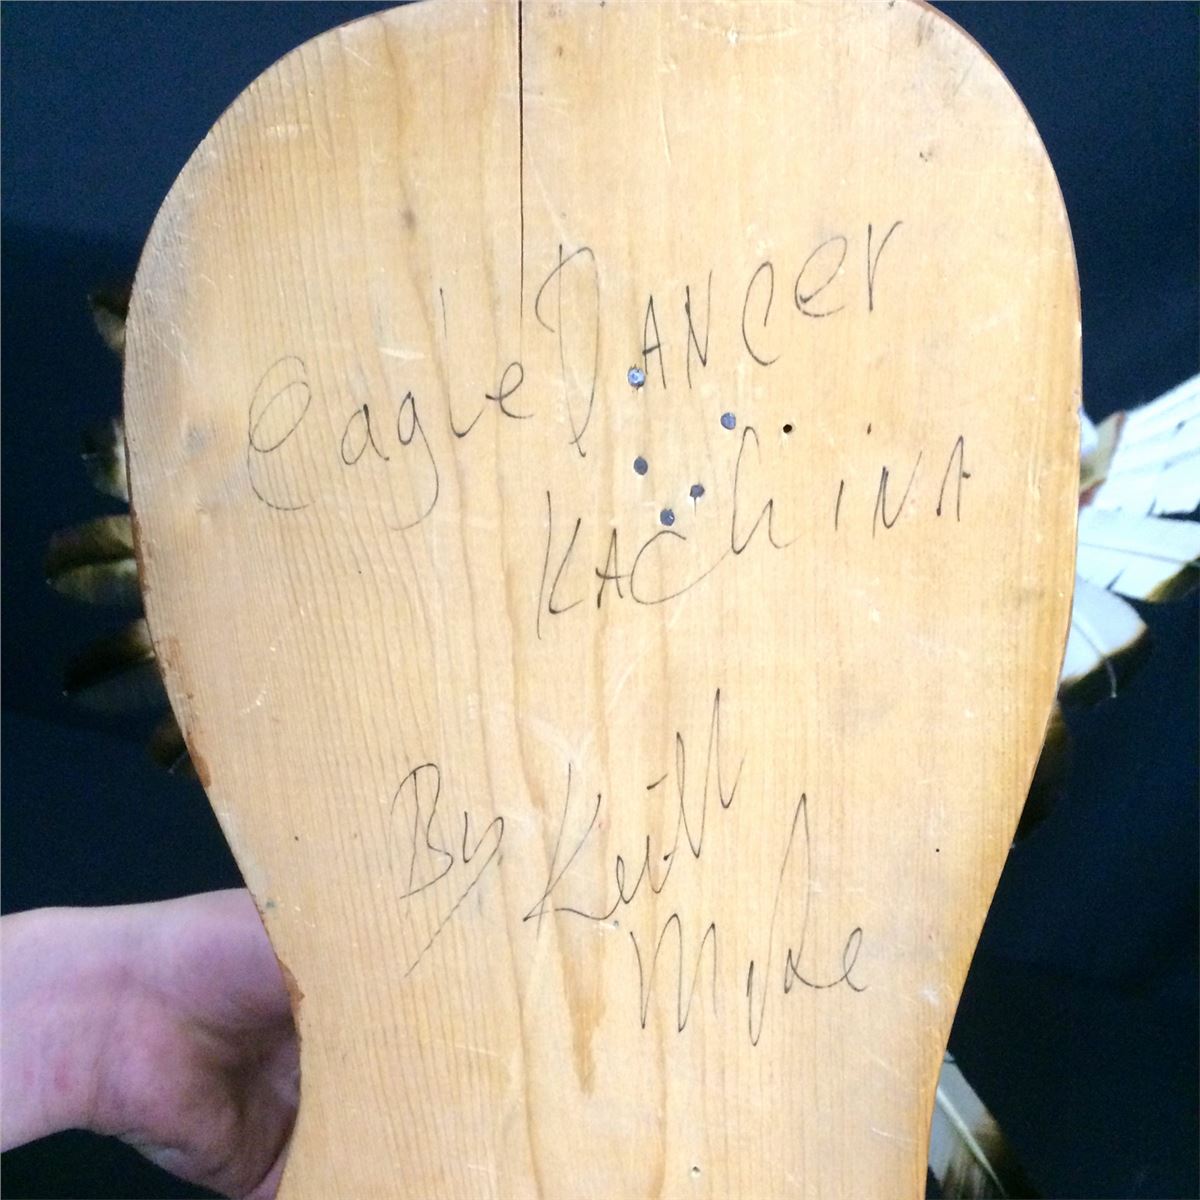 Eagle DANCer
KAChiNA
By Keith
Mike